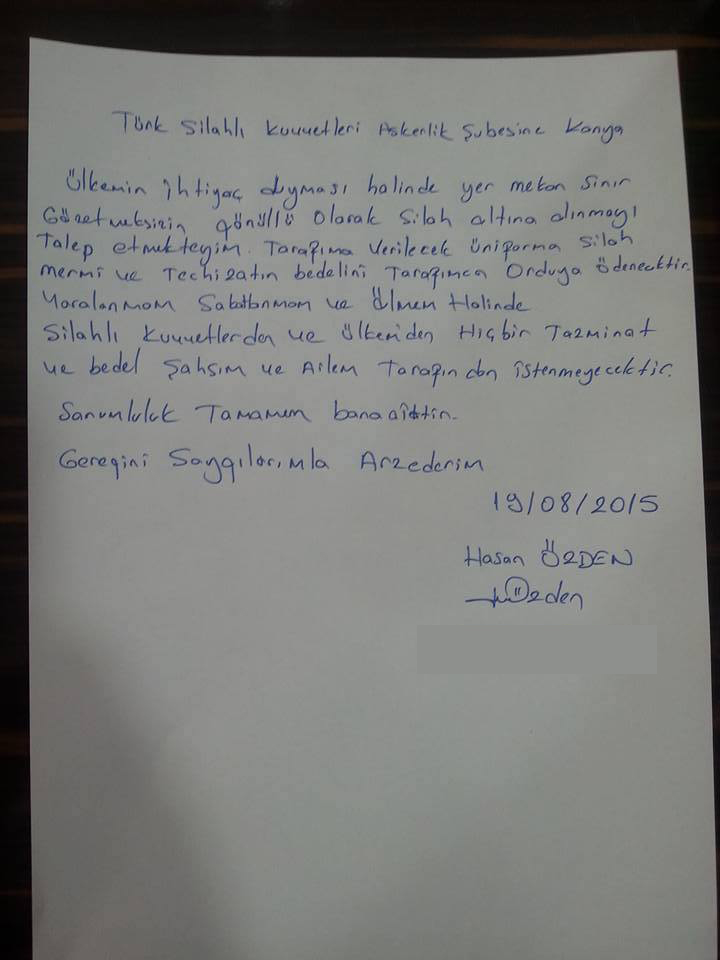 Türk Silahlı Kuvvetleri Askerlik Şubesine Konya
Ülkemin ihtiyaç duyması halinde yer mekan sınır
Gözetmeksizin gönüllü olarak Silah altına alınmayı
Talep etmekteyim. Tarafıma verilecek üniforma silah
mermi ve Techizatın bedelini Tarafımca Orduya ödenecektir.
Yaralanmam Sakatlanmam ve Ölmem Halinde
Silahlı Kuvvetlerden ve ülkemden Hiçbir Tazminat
ve bedel Şahsım ve Ailem Tarafından istenmeyecektir.
Sorumluluk Tamamen bana aittir.
Gereğini Saygılarımla Arzederim
19/08/2015
Hasan ÖZDEN
HÖzden